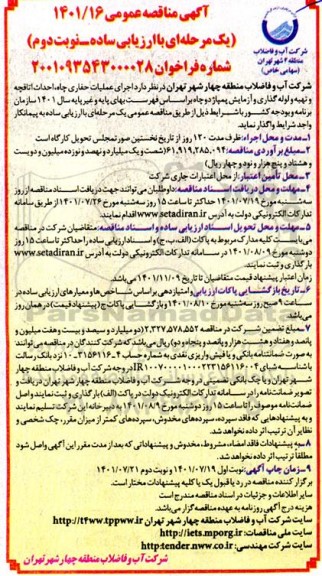 آگهی مناقصه عمومی ۱۴۰۱/۱۶
(یک مرحله‌ای با ارزیابی ساده - نوبت دوم)
شماره فراخوان ۲۰۰۱۰۹۳۵۴۳۰۰۰۰۲۸
شرکت آب و فاضلاب
منطقه ۴ شهر تهران
(سهامی خاص)
شرکت آب و فاضلاب منطقه چهار شهر تهران در نظر دارد اجرای عملیات حفاری چاه، احداث اتاقچه
و تهیه و لوله گذاری و آزمایش پمپاژ دو چاه بر اساس فهرست بهای پایه و غیر پایه سال ۱۴۰۱ سازمان
برنامه و بودجه کشور با شرایط ذیل از طریق مناقصه عمومی یک مرحله‌ای با ارزیابی ساده به پیمانکار
واجد شرایط واگذار نماید.
۱- مدت و محل اجراء: ظرف مدت ۱۲۰ روز از تاریخ نخستین صورتمجلس تحویل کارگاه است
۲- مبلغ برآوردی مناقصه: ۶۱,۹۱۹,۲۸۵,۰۹۴ (شصت و یک میلیارد و نهصد و نوزده میلیون و دویست
و هشتاد و پنج هزار و نود و چهار ریال)
۳- محل تأمین اعتبار: از محل اعتبارات جاری شرکت
۴- مهلت و محل دریافت اسناد مناقصه: داوطلبان می‌توانند جهت دریافت اسناد مناقصه از روز
سه‌شنبه مورخ ۱۴۰۱/۰۷/۱۹ حداکثر تا ساعت ۱۵ روز سه‌شنبه مورخ ۱۴۰۱/۰۷/۲۶ از طریق سامانه
تدارکات الکترونیکی دولت به آدرس www.setadiran.ir اقدام نمایند.
۵- مهلت و محل تحویل اسناد ارزیابی ساده و اسناد مناقصه: متقاضیان شرکت در مناقصه
می‌بایست کلیه مدارک مربوط به پاکات (الف، ب، ج) و اسناد ارزیابی ساده را حداکثر تا ساعت ۱۵ روز
دوشنبه مورخ ۱۴۰۱/۰۸/۰۹ در سامانه تدارکات الکترونیکی دولت به آدرس www.setadiran.ir
بارگذاری و ثبت نمایند.
زمان اعتبار پیشنهاد قیمت متقاضیان تا تاریخ ۱۴۰۱/۱۱/۰۹ می‌باشد.
۶- تاریخ بازگشایی پاکات: ارزیابی و امتیازدهی بر اساس شاخص‌ها و معیارهای ارزیابی ساده در
ساعت ۹ صبح روز سه‌شنبه مورخ ۱۴۰۱/۰۸/۱۰ و بازگشایی پاکات ج (پیشنهاد قیمت) در همان روز
می‌باشد.
۷- مبلغ تضمین شرکت در مناقصه ۲,۳۲۷,۵۷۸,۵۵۲ (دو میلیارد و سیصد و بیست و هفت میلیون و
پانصد و هفتاد و هشت هزار و پانصد و پنجاه و دو) ریال می‌باشد که شرکت‌کنندگان در مناقصه می‌توانند
به صورت ضمانتنامه بانکی و یا فیش واریزی نقدی به شماره حساب
نزد بانک رسالت
در وجه شرکت آب و فاضلاب منطقه چهار
شهر تهران و یا چک بانکی تضمینی در وجه شرکت آب و فاضلاب منطقه چهار شهر تهران دریافت و
تصویر ضمانتنامه را در سامانه تدارکات الکترونیک دولت در پاکت (الف) بارگذاری و ثبت نمایند و اصل
ضمانتنامه موصوف را تا ساعت ۱۵ روز دوشنبه مورخ ۱۴۰۱/۰۸/۰۹ به دبیرخانه این شرکت تسلیم نمایند
و به پیشنهادهایی که فاقد سپرده، سپرده‌های مخدوش، سپرده‌های کمتر از میزان مقرر، چک شخصی و
نظایر آن ترتیب اثر داده نخواهد شد.
۸- به پیشنهادات فاقد امضاء، مشروط، مخدوش و پیشنهاداتی که بعد از مدت مقرر این آگهی واصل شود
مطلقاً ترتیب اثر داده نخواهد شد.
۹- زمان چاپ آگهی: نوبت اول ۱۴۰۱/۰۷/۱۹ و نوبت دوم ۱۴۰۱/۰۷/۲۱
برگزار کننده مناقصه در رد یا قبول یک یا کلیه پیشنهادات مختار است.
سایر اطلاعات و جزئیات در اسناد مناقصه مندرج است
هزینه درج آگهی روزنامه به عهده مناقصه گزار می‌باشد.
سایت شرکت آب و فاضلاب منطقه چهار شهر تهران http://t4ww.tppww.ir
سایت ملی مناقصات: http://iets.mporg.ir
سایت شرکت مهندسی: http:tender.nww.co.ir
شرکت آب و فاضلاب منطقه چهار شهر تهران